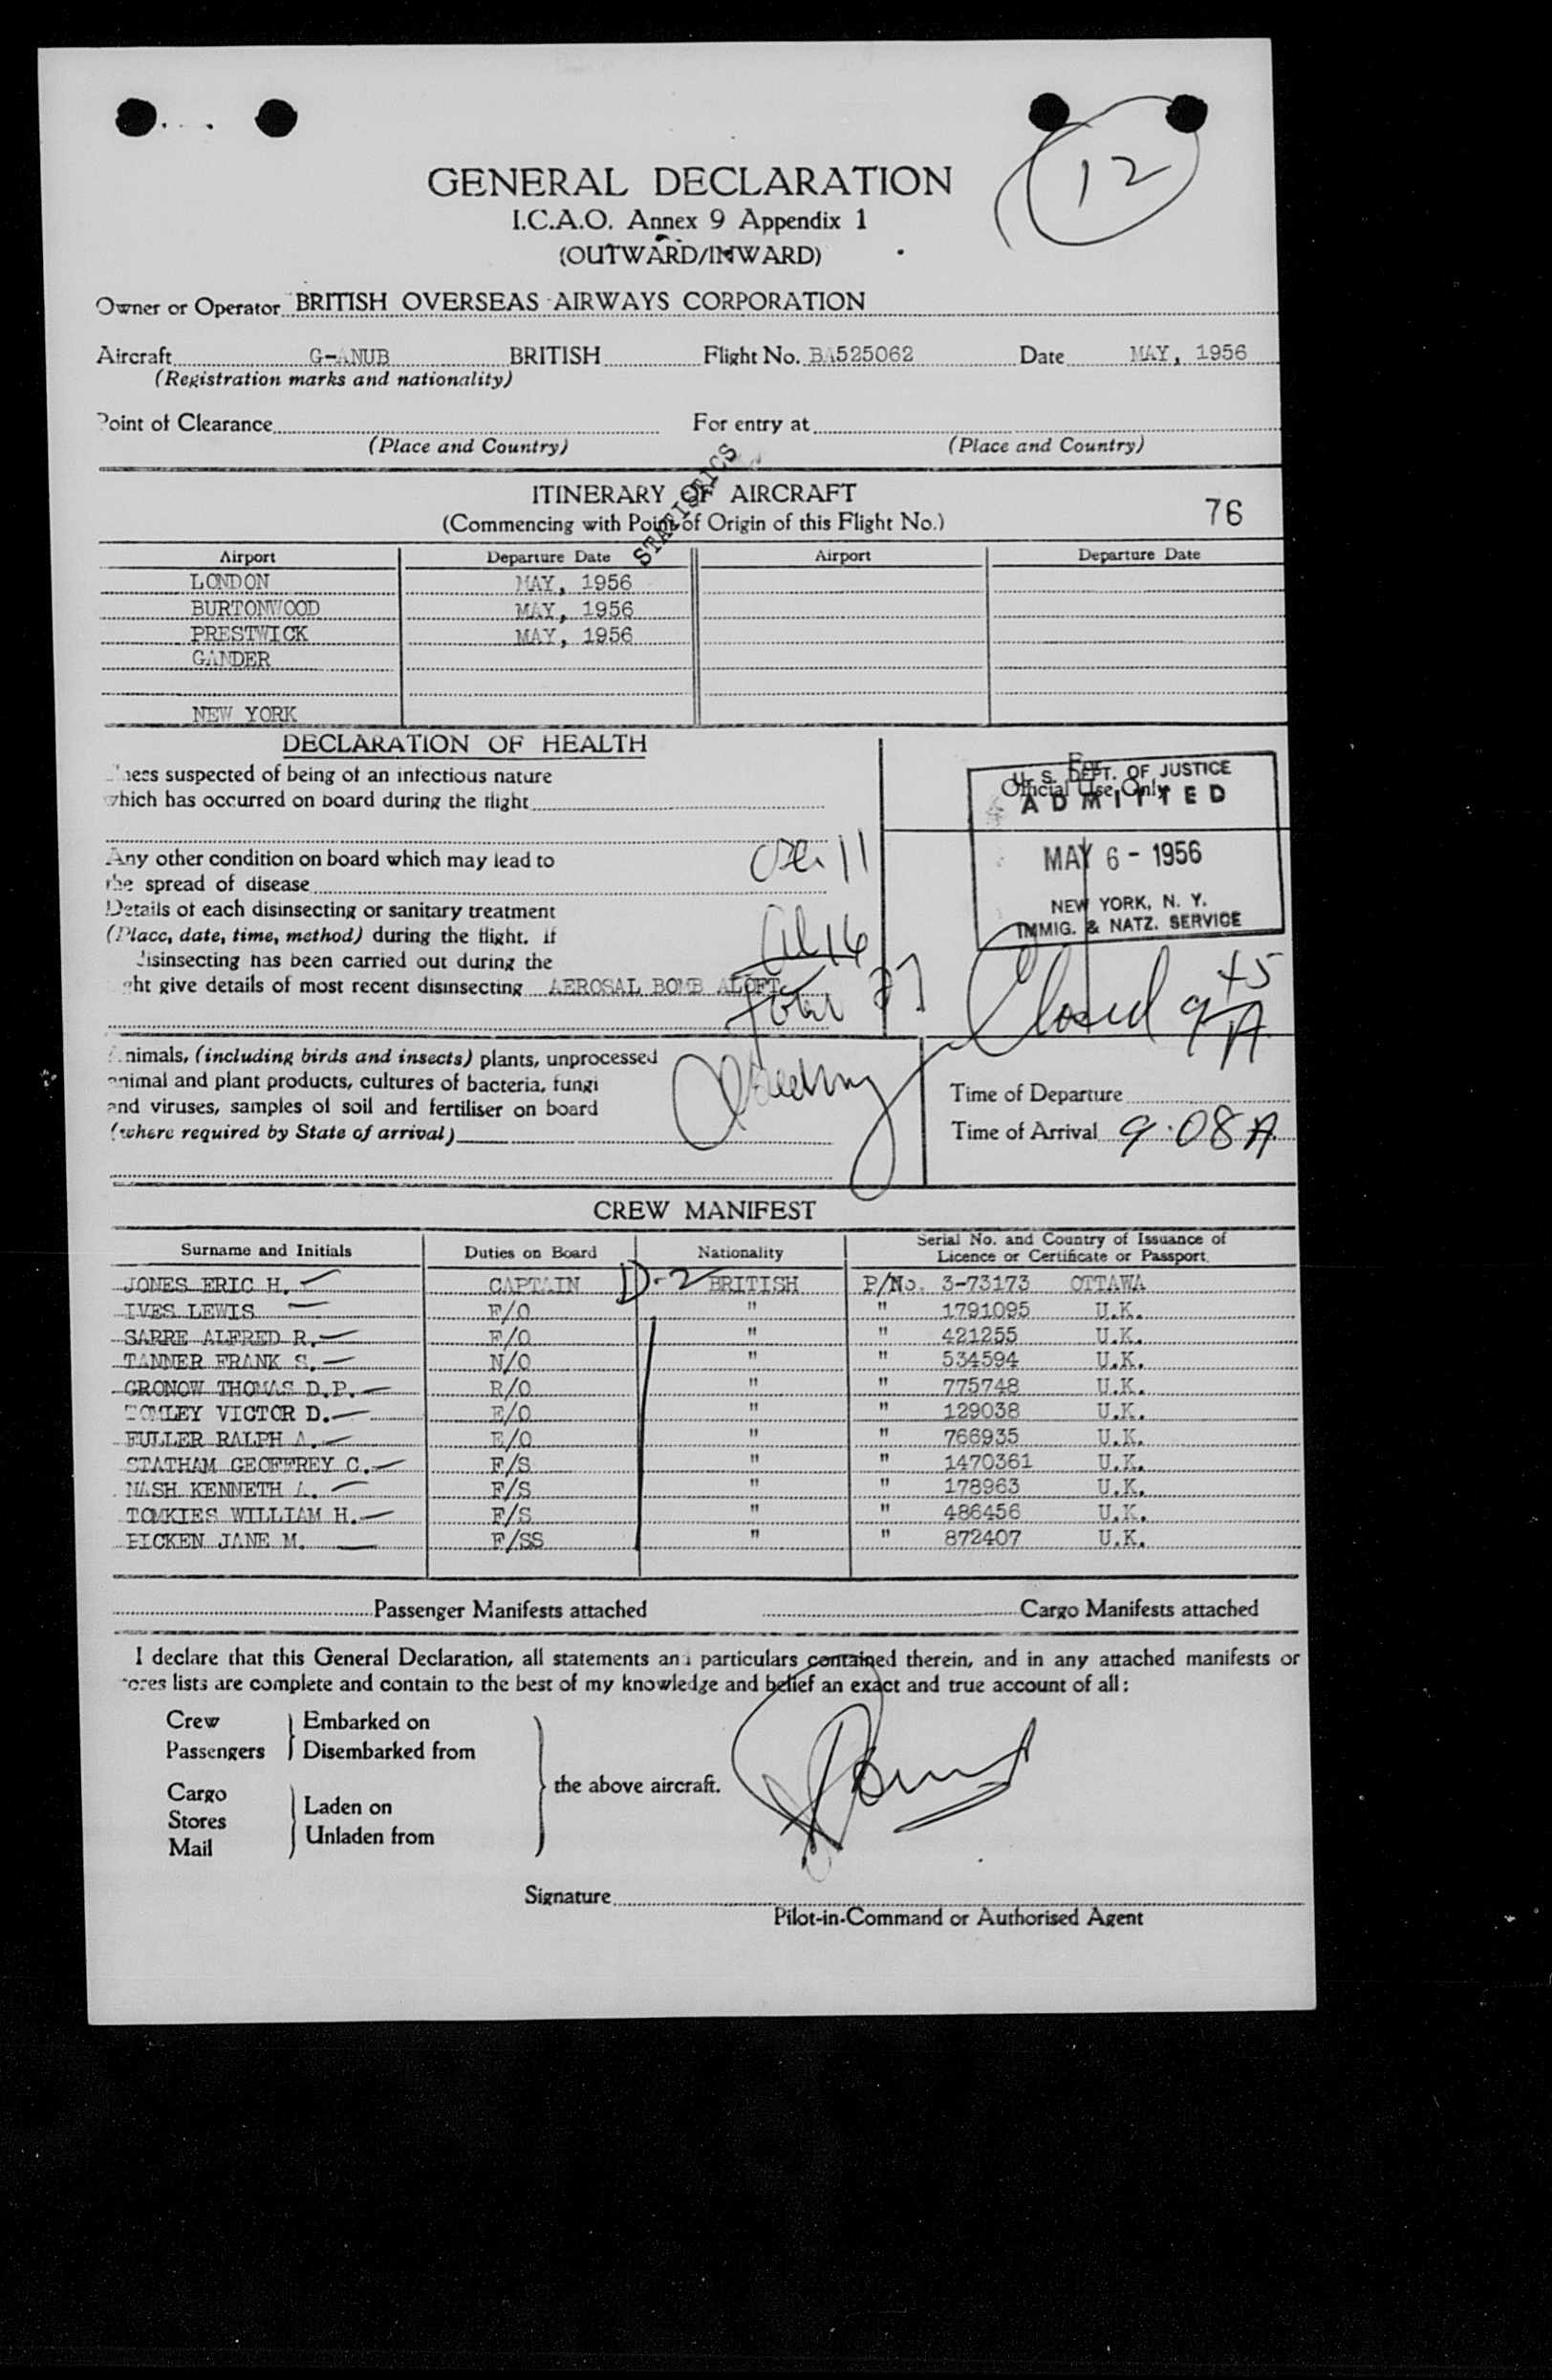 12
GENERAL DECLARATION
I.C.A.O. Annex 9 Appendix 1
(OUTWARD/INWARD)
Owner or Operator BRITISH OVERSEAS AIRWAYS CORPORATION
Aircraft G-ANUB BRITISH Flight No. BA525062 Date MAY, 1956
(Registration marks and nationality)
Point of Clearance For entry at
(Place and Country) (Place and Country)
STATISTICS
ITINERARY OF AIRCRAFT
(Commencing with Point of Origin of this Flight No.) 76
Airport Departure Date Airport Departure Date
LONDON MAY, 1956
BURTONWOOD MAY, 1956
PRESTWICK MAY, 1956
GANDER
NEW YORK
DECLARATION OF HEALTH
suspected of being of an infectious nature
which has occurred on board during the flight
For
Official Use Only
U. S. DEPT. OF JUSTICE
ADMITTED
MAY 6 - 1956
NEW YORK, N. Y.
IMMIG. & NATZ. SERVICE
Any other condition on board which may lead to
the spread of disease
11
Details of each disinsecting or sanitary treatment
(Place, date, time, method) during the flight. If
disinsecting has been carried out during the
give details of most recent disinsecting AEROSAL BOMB ALOFT
16
27
Closed 9 45 A
Animals, (including birds and insects) plants, unprocessed
animal and plant products, cultures of bacteria, fungi
and viruses, samples of soil and fertiliser on board
(where required by State of arrival)
Time of Departure
Time of Arrival 9.08 A
CREW MANIFEST
Surname and Initials Duties on Board Nationality Serial No. and Country of Issuance of Licence or Certificate or Passport.
JONES ERIC H. CAPTAIN D-2 BRITISH P/No. 3-73173 OTTAWA
IVES LEWIS F/O " " 1791095 U.K.
SARRE ALFRED R. F/O " " 421255 U.K.
TANNER FRANK S. N/O " " 534594 U.K.
GRONOW THOMAS D.P. R/O " " 775748 U.K.
VICTOR D. E/O " " 129038 U.K.
FULLER RALPH A. E/O " " 766935 U.K.
STATHAM GEOFFREY C. F/S " " 1470361 U.K.
NASH KENNETH A. F/S " " 178963 U.K.
TOMKIES WILLIAM H. F/S " " 486456 U.K.
JANE M. F/SS " " 872407 U.K.
Passenger Manifests attached Cargo Manifests attached
I declare that this General Declaration, all statements and particulars contained therein, and in any attached manifests or
stores lists are complete and contain to the best of my knowledge and belief an exact and true account of all:
Crew Embarked on
Passengers Disembarked from
the above aircraft.
Cargo
Stores Laden on
Mail Unladen from
Signature
Pilot-in-Command or Authorised Agent